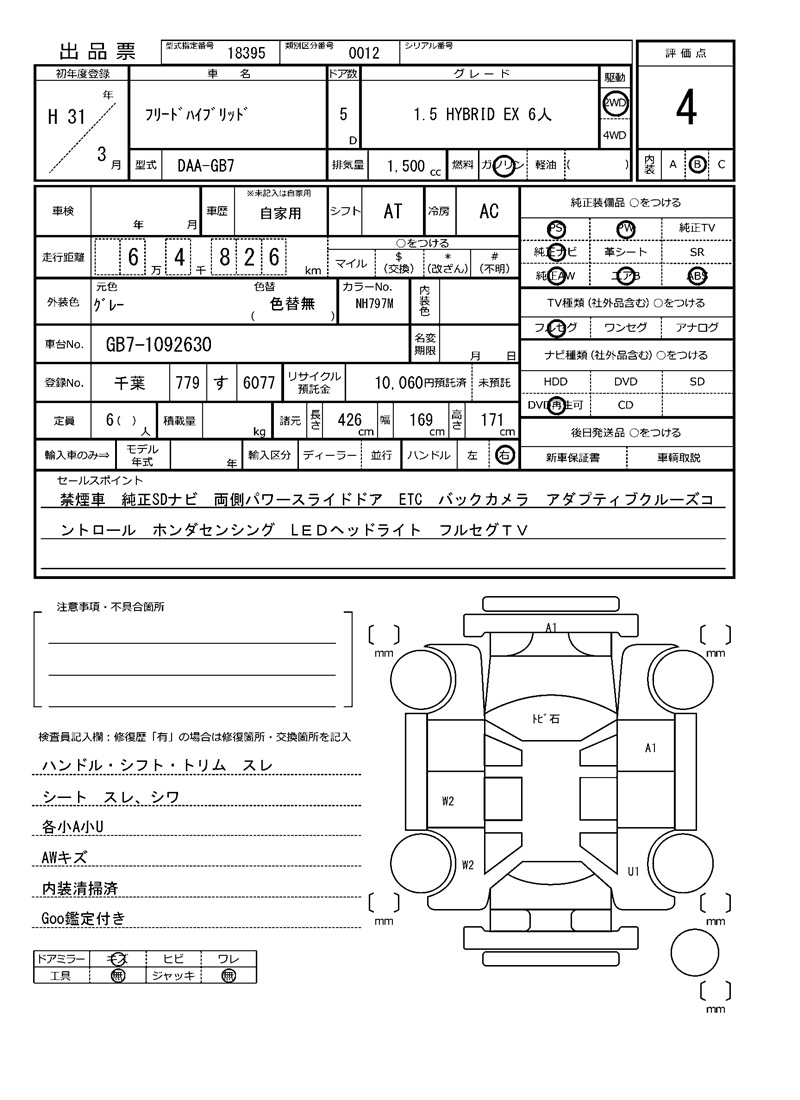 出品票 型式指定番号 18395 類別区分番号 0012 シリアル番号
評価点
4
内装 A B C
初年度登録 車名 ドア数 グレード 駆動
H 31 年 3 月 ﾌﾘｰﾄﾞﾊｲﾌﾞﾘｯﾄﾞ 5 D 1.5 HYBRID EX 6人 2WD 4WD
型式 DAA-GB7 排気量 1,500 cc 燃料 ガソリン 軽油 ( )
車検 年 月 車歴 ※未記入は自家用 自家用 シフト AT 冷房 AC
走行距離 6 万 4 千 8 2 6 km ○をつける マイル $(交換) *(改ざん) #(不明)
外装色 元色 ｸﾞﾚｰ 色替 ( 色替無 ) カラーNo. NH797M 内装色
車台No. GB7-1092630 名変期限 月 日
登録No. 千葉 779 す 6077 リサイクル預託金 10,060円預託済 未預託
定員 6 ( ) 人 積載量 kg 諸元 長さ 426 cm 幅 169 cm 高さ 171 cm
輸入車のみ⇒ モデル年式 年 輸入区分 ディーラー 並行 ハンドル 左 右
純正装備品 ○をつける
PS PW 純正TV
純正ナビ 革シート SR
純正AW エアB ABS
TV種類(社外品含む) ○をつける
フルセグ ワンセグ アナログ
ナビ種類(社外品含む) ○をつける
HDD DVD SD
DVD再生可 CD
後日発送品 ○をつける
新車保証書 車輌取説
セールスポイント
禁煙車 純正SDナビ 両側パワースライドドア ETC バックカメラ アダプティブクルーズコ
ントロール ホンダセンシング LEDヘッドライト フルセグTV
注意事項・不具合箇所
検査員記入欄：修復歴「有」の場合は修復箇所・交換箇所を記入
ハンドル・シフト・トリム スレ
シート スレ、シワ
各小A小U
AWキズ
内装清掃済
Goo鑑定付き
ドアミラー キズ ヒビ ワレ
工具 無 ジャッキ 無
A1
mm mm
ﾄﾋﾞ石
A1
W2
W2 U1
mm mm
mm